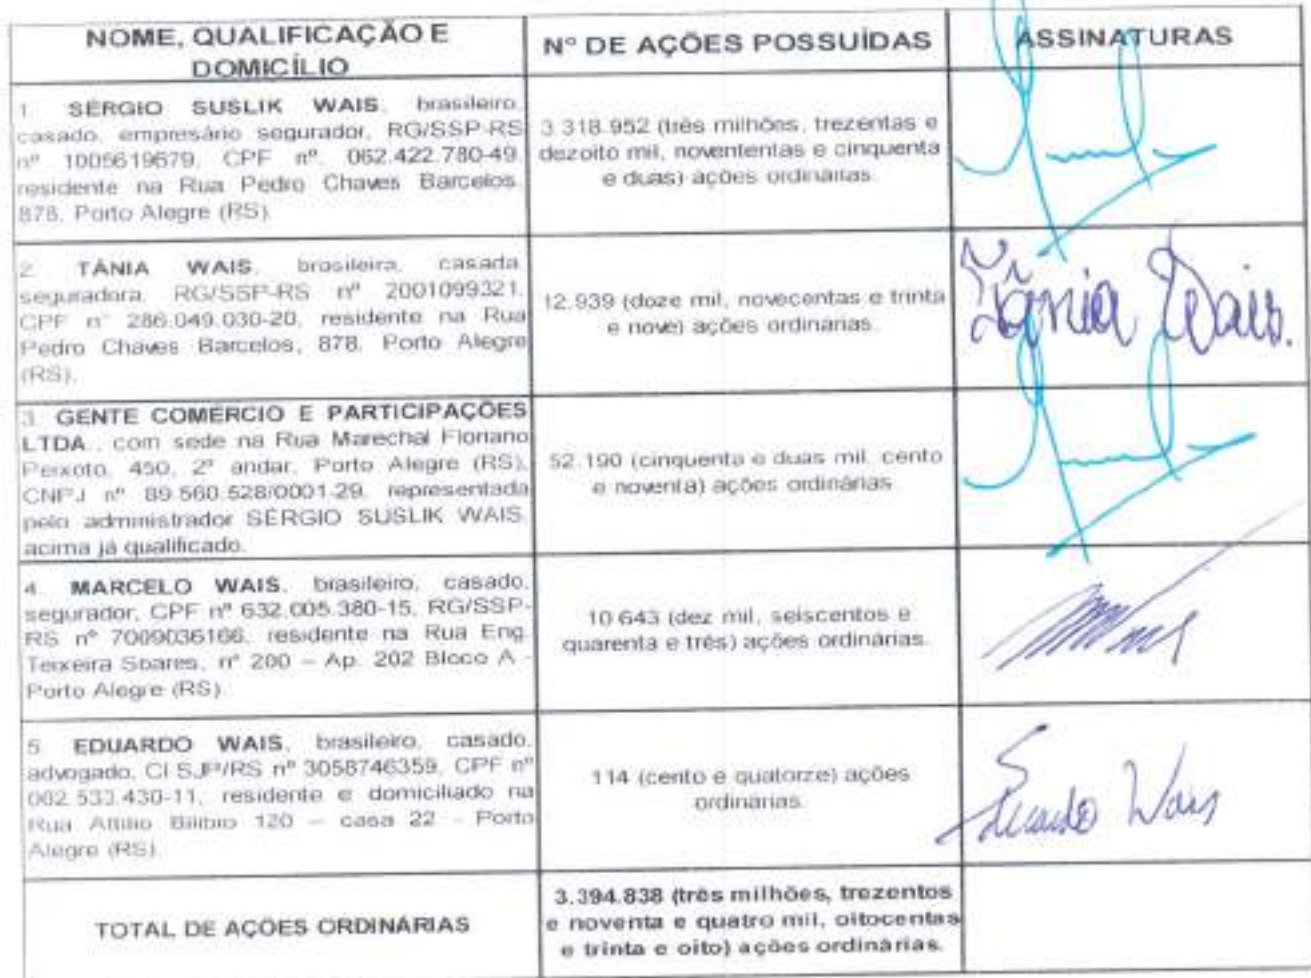 NOME, QUALIFICAÇÃO E
DOMICÍLIO
Nº DE AÇÕES POSSUÍDAS
ASSINATURAS
1. SÉRGIO SUSLIK WAIS, brasileiro,
casado, empresário segurador, RG/SSP-RS
nº 1005619579, CPF nº. 062.422.780-49,
residente na Rua Pedro Chaves Barcelos,
878, Porto Alegre (RS).
3.318.952 (três milhões, trezentas e
dezoito mil, novententas e cinquenta
e duas) ações ordinárias.
2. TÂNIA WAIS, brasileira, casada,
seguradora, RG/SSP-RS nº 2001099321,
CPF nº 286.049.030-20, residente na Rua
Pedro Chaves Barcelos, 878, Porto Alegre
(RS).
12.939 (doze mil, novecentas e trinta
e nove) ações ordinárias.
Tânia Wais.
3. GENTE COMÉRCIO E PARTICIPAÇÕES
LTDA., com sede na Rua Marechal Floriano
Peixoto, 450, 2º andar, Porto Alegre (RS),
CNPJ nº 89.560.528/0001-29, representada
pelo administrador SÉRGIO SUSLIK WAIS,
acima já qualificado.
52.190 (cinquenta e duas mil, cento
e noventa) ações ordinárias.
4. MARCELO WAIS, brasileiro, casado,
segurador, CPF nº 632.005.380-15, RG/SSP-
RS nº 7009036166, residente na Rua Eng.
Teixeira Soares, nº 200 – Ap. 202 Bloco A -
Porto Alegre (RS).
10.643 (dez mil, seiscentos e
quarenta e três) ações ordinárias.
5. EDUARDO WAIS, brasileiro, casado,
advogado, CI SJP/RS nº 3058746359, CPF nº
002.533.430-11, residente e domiciliado na
Rua Attilio Bilibio 120 – casa 22 - Porto
Alegre (RS).
114 (cento e quatorze) ações
ordinárias.
Eduardo Wais
TOTAL DE AÇÕES ORDINÁRIAS
3.394.838 (três milhões, trezentos
e noventa e quatro mil, oitocentas
e trinta e oito) ações ordinárias.